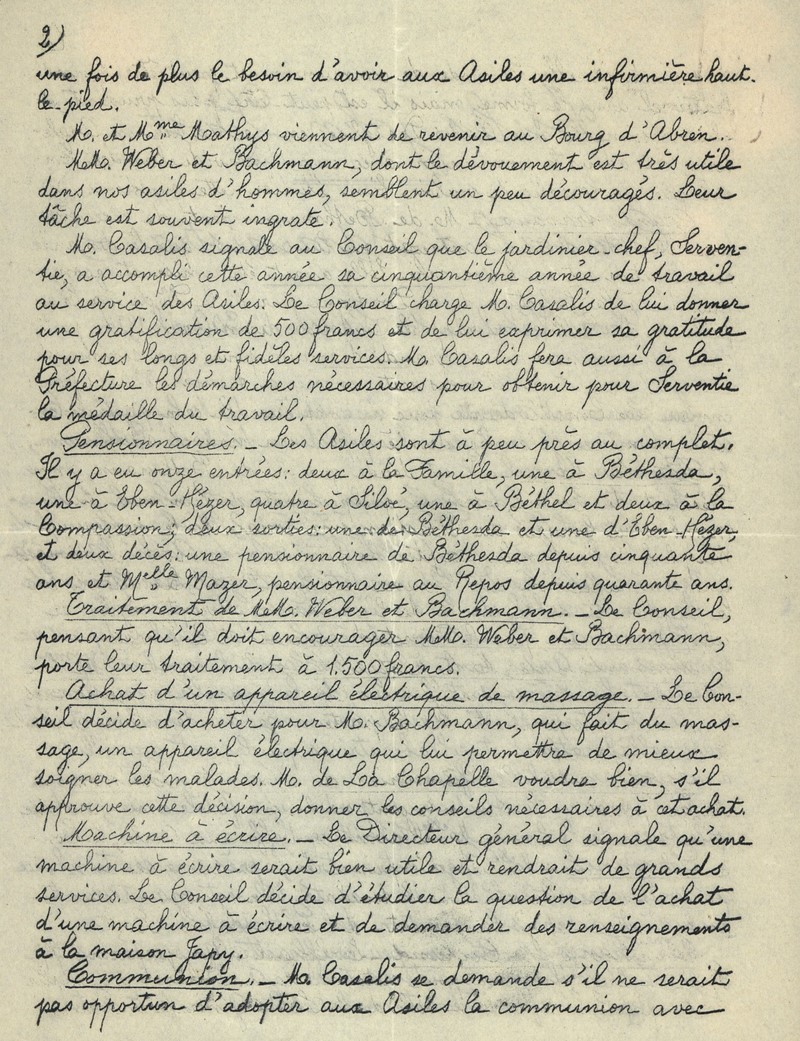 2)
une fois de plus le besoin d'avoir aux Asiles une infirmière haut-
le-pied.
M. et Mme Mathys viennent de revenir au Bourg d'Abren.
MM. Weber et Bachmann, dont le dévouement est très utile
dans nos asiles d'hommes, semblent un peu découragés. Leur
tâche est souvent ingrate.
M. Casalis signale au Conseil que le jardinier-chef, Serven-
tie, a accompli cette année sa cinquantième année de travail
au service des Asiles. Le Conseil charge M. Casalis de lui donner
une gratification de 500 francs et de lui exprimer sa gratitude
pour ses longs et fidèles services. M. Casalis fera aussi à la
Préfecture les démarches nécessaires pour obtenir pour Serventie
la médaille du travail.
Pensionnaires. – Les Asiles sont à peu près au complet.
Il y a eu onze entrées: deux à la Famille, une à Béthesda,
une à Eben-Hézer, quatre à Siloé, une à Béthel et deux à la
Compassion; deux sorties: une de Béthesda et une d'Eben-Hézer,
et deux décès: une pensionnaire de Béthesda depuis cinquante
ans et Melle Mazer, pensionnaire au Repos depuis quarante ans.
Traitement de MM. Weber et Bachmann. – Le Conseil,
pensant qu'il doit encourager MM. Weber et Bachmann,
porte leur traitement à 1.500 francs.
Achat d'un appareil électrique de massage. – Le Con-
seil décide d'acheter pour M. Bachmann, qui fait du mas-
sage, un appareil électrique qui lui permettra de mieux
soigner les malades. M. de La Chapelle voudra bien, s'il
approuve cette décision, donner les conseils nécessaires à cet achat.
Machine à écrire. – Le Directeur général signale qu'une
machine à écrire serait bien utile et rendrait de grands
services. Le Conseil décide d'étudier la question de l'achat
d'une machine à écrire et de demander des renseignements
à la maison Japy.
Communion. – M. Casalis se demande s'il ne serait
pas opportun d'adopter aux Asiles la communion avec